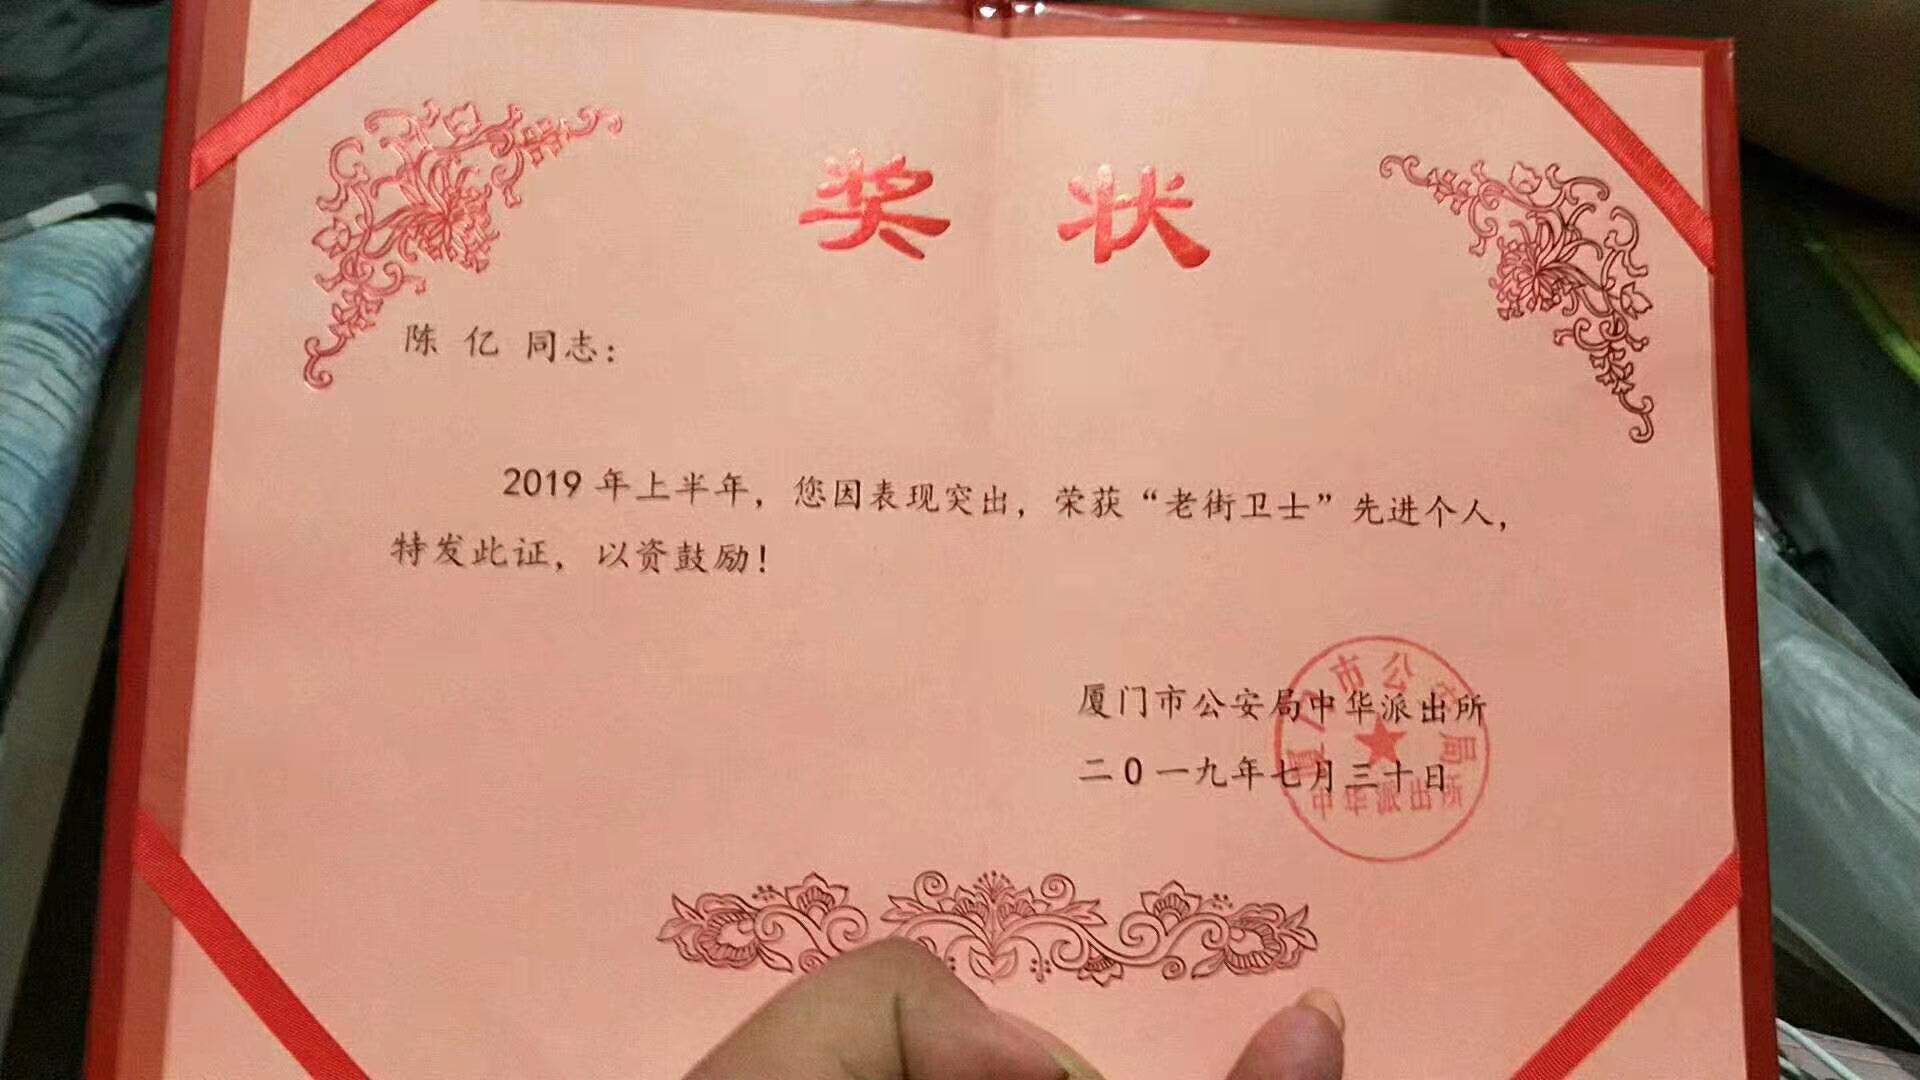 奖 状
陈 亿 同志：
2019 年上半年，您因表现突出，荣获“老街卫士”先进个人，
特发此证，以资鼓励！
厦门市公安局中华派出所
二0一九年七月三十日
厦门市公安局
中华派出所